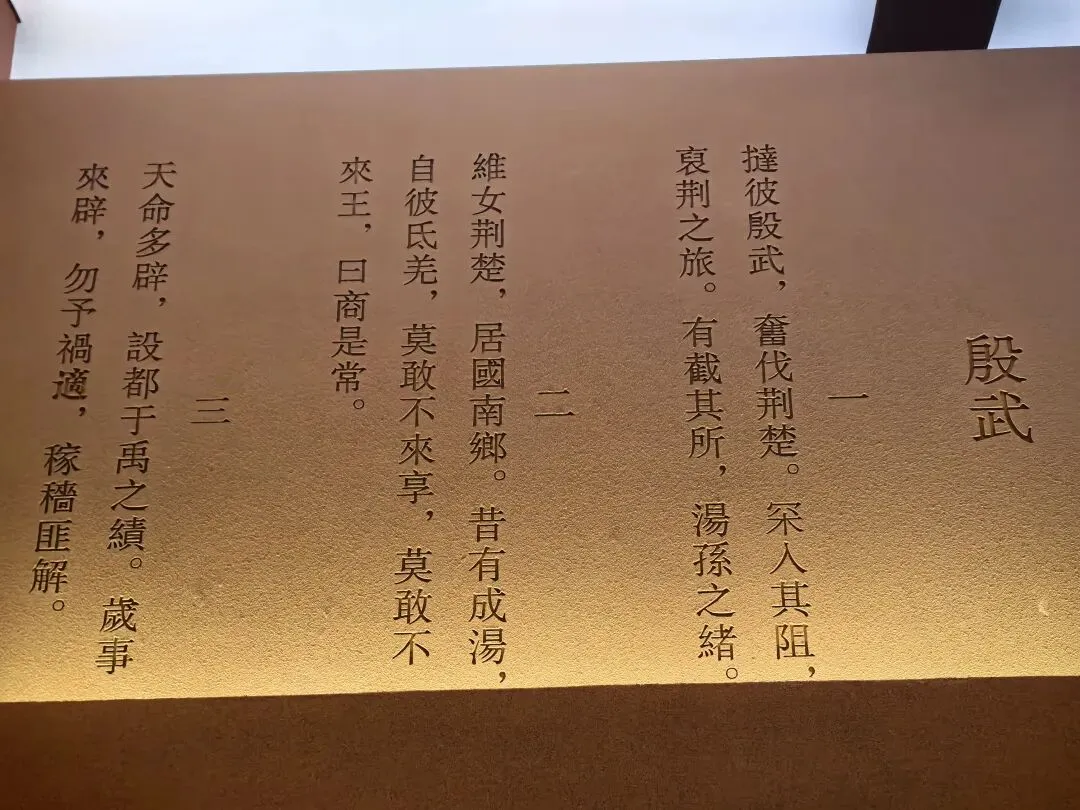 殷武
一
撻彼殷武，奮伐荆楚。罙入其阻，
裒荆之旅。有截其所，湯孫之緒。
二
維女荆楚，居國南鄉。昔有成湯，
自彼氐羌，莫敢不來享，莫敢不
來王，曰商是常。
三
天命多辟，設都于禹之績。歲事
來辟，勿予禍適，稼穡匪解。